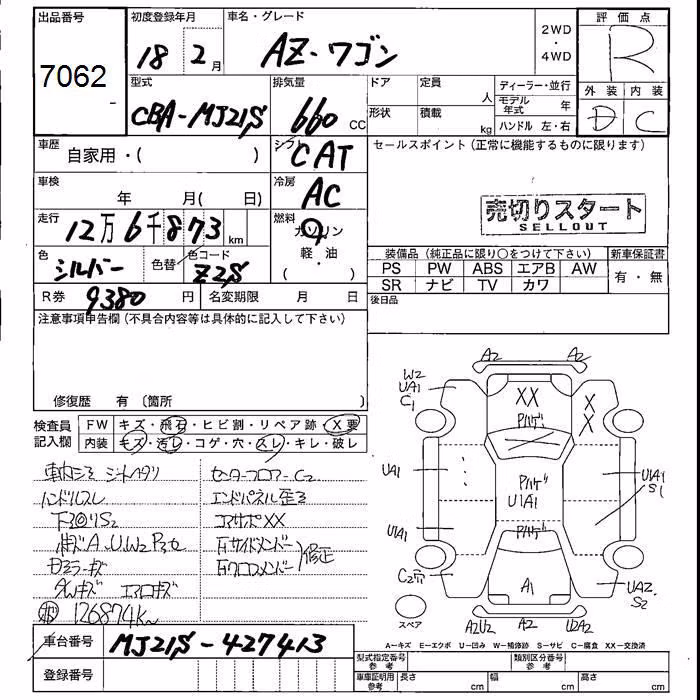 出品番号
7062
初度登録年月
18 2月
車名・グレード
AZ-ワゴン
2WD
・
4WD
評価点
R
外装 内装
D C
型式
CBA-MJ21S
排気量
660 CC
ドア
形状
定員 人
積載 kg
ディーラー・並行
モデル年式 年
ハンドル 左・右
車歴
自家用・( )
シフト
CAT
セールスポイント(正常に機能するものに限ります)
車検
年 月( 日)
冷房
AC
売切りスタート
SELLOUT
走行
12万6千873 km
燃料
ガソリン
軽・油
( )
色
シルバー
色替
色コード
Z2S
装備品(純正品に限り○をつけて下さい)
新車保証書
PS PW ABS エアB AW
SR ナビ TV カワ
有・無
R券 9380 円
名変期限 月 日
後日品
注意事項申告欄(不具合内容等は具体的に記入して下さい)
修復歴 有( 箇所 )
検査員記入欄
FW キズ・飛石・ヒビ割・リペア跡・X要
内装 キズ・汚レ・コゲ・穴・スレ・キレ・破レ
車内シミ シートヘタリ
ハンドルスレ
下回りS2
センターフロアーC2
エンドパネル歪ミ
コアサポXX
右サイドメンバー
右クロスメンバー
修正
126874Km
W2
UA1
C1
A2 A2
XX
X
X
UA1
U1A1
U1A1
U1A1
S1
A1
UA2
S2
スペア
A2U2 A2 U2A2
A-キズ E-エクボ U-凹み W-補修跡 S-サビ C-腐食 XX-交換済
車台番号
MJ21S-427413
登録番号
型式指定番号
参考
類別区分番号
参考
車庫証明用
参考
長さ cm 幅 cm 高さ cm